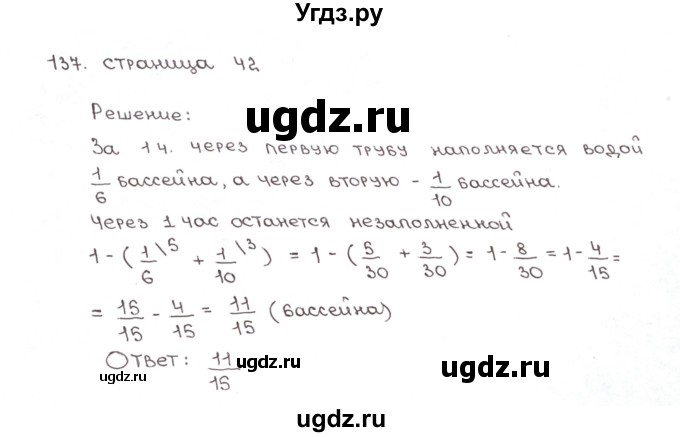 Угдз.ру
137. страница 42
Решение:
За 1 ч. через первую трубу наполняется водой
1/6 бассейна, а через вторую - 1/10 бассейна.
Через 1 час останется незаполненной
1 - (1/6 \5 + 1/10 \3) = 1 - (5/30 + 3/30) = 1 - 8/30 = 1 - 4/15 =
= 15/15 - 4/15 = 11/15 (бассейна)
Ответ: 11/15
ugdz.ru
ugdz.ru
ugdz.ru
ugdz.ru
ugdz.ru
ugdz.ru